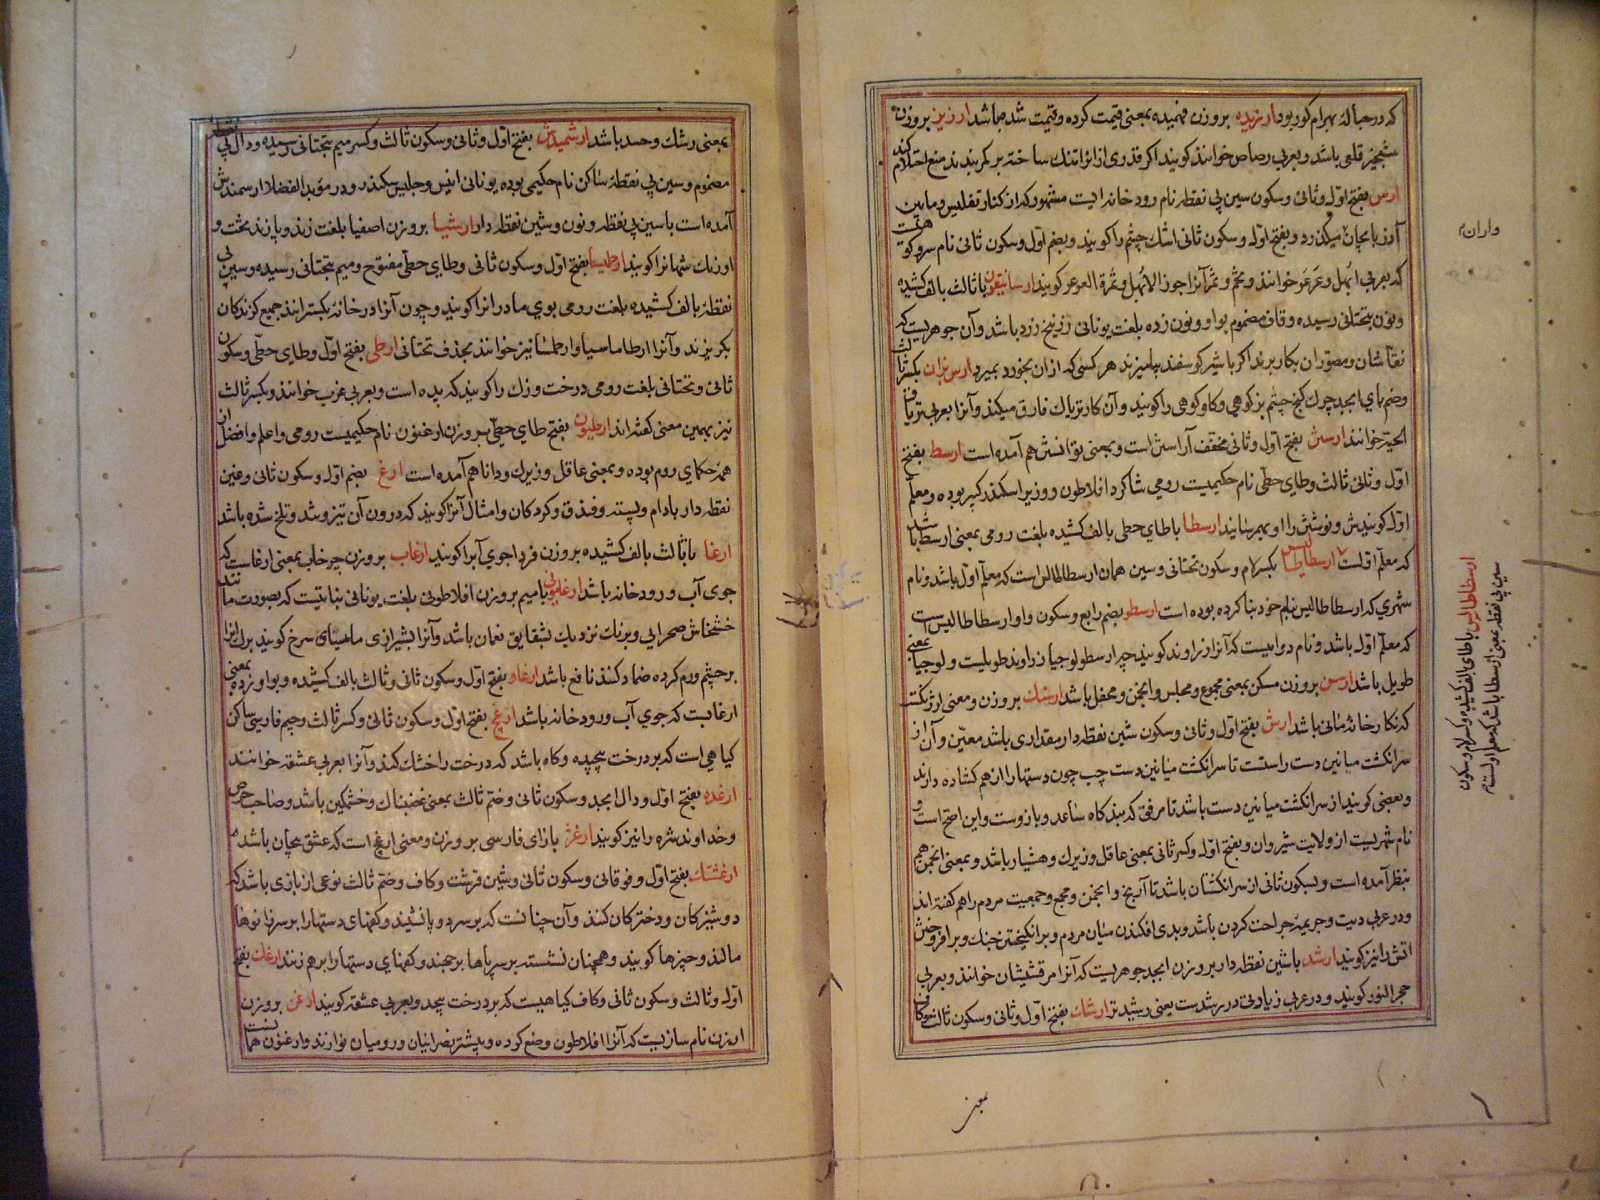 که در حبالهٔ بهرام کور بود ارزیده بر وزن فهمیده بمعنی قیمت کرده و قیمت شده باشد ارزیز بر وزن
قلعی باشد و بعربی رصاص خوانند کویند اکر قدری از آن تنک ساخته بر کمر بندند منع احتلام کند
ارس بفتح اول و ثانی و سکون سین بی نقطه نام رود خانه ایست مشهور که از کنار تفلیس و مابین
آذربایجان میکذرد و بفتح اول و سکون ثانی اشک چشم را کویند و بضم اول و سکون ثانی نام سرو کوهیست
که بعربی ابهل و عرعر خوانند و تخم و ثمر آنرا جوز الابهل و ثمرة العرعر کویند ارسانیقون با ثالث بالف کشیده
و نون بتحتانی رسیده و قاف مضموم بواو و نون زده بلغت یونانی زرنیخ زرد باشد و آن جوهریست که
نقاشان و مصوران بکار برند اکر با شیر کوسفند بیامیزند هر مکسی که از آن بخورد بمیرد ارس بزان بکسر ثالث
و ضم بای ابجد چرک کنج چشم بز کوهی و کاو کوهی را کویند و آن کار تریاک فارق میکند و آنرا بعربی تریاق
الحیة خوانند ارستن بفتح اول و ثانی مخفف آراستن است و بمعنی توانستن هم آمده است ارسط بفتح
اول و ثانی ثالث و طای حطی نام حکیمیست رومی شاکرد افلاطون و وزیر اسکندر کبیر بوده و معلم
اول کویندش و نوشتن را او بهم رسانید ارسطا با طای حطی بالف کشیده بلغت رومی بمعنی ارسط باشد
که معلم اولست ارسطاطالیس بکسر لام و سکون تحتانی و سین همان ارسطاطالس است که معلم اول باشد و نام
شهری که ارسطاطالیس بنام خود بنا کرده بوده است ارسطو بضم رابع و سکون واو ارسطاطالیس است
که معلم اول باشد و نام دوایست که آنرا زراوند کویند چه ارسطولوجیا زراوند طویلست و لوجیا بمعنی
طویل باشد ارسن بر وزن مسکن بمعنی مجمع و مجلس و انجمن و محفل باشد ارسنک بر وزن و معنی ارژنکست
که نکار خانهٔ مانی باشد ارش بفتح اول و ثانی و سکون شین نقطه دار مقداری باشد معین و آن از
سر انکشت میانین دست راست تا سر انکشت میانین دست چپ چون دستها را از هم کشاده دارند
و بعضی کویند از سر انکشت میانین دست باشد تا مرفق که بندکاه ساعد و بازوست و این اصح است و
نام شهریست از ولایت شیروان و بفتح اول و کسر ثانی بمعنی عاقل و زیرک و هشیار باشد و بمعنی انجمن هم
بنظر آمده است و بسکون ثانی از سر انکشتان باشد تا آرنج و انجمن و مجمع و جمعیت مردم را هم کفته اند
و در عربی دیت و جریمهٔ جراحت کردن باشد و بدی افکندن میان مردم و برانکیختن جنک و بر افروختن
آتش را نیز کویند ارشد با شین نقطه دار بر وزن ابجد جوهریست که آنرا مرقشیشا خوانند و بعربی
حجر النور کویند و در عربی زیادتی در رشدست یعنی رشیدتر ارشک بفتح اول و ثانی و سکون ثالث و کاف
واران
ارسطاطالیس با طای بالف کشیده و کسر لام و سکون
سین بی نقطه بمعنی ارسطا باشد که معلم اولست
بمعنی
بمعنی رشک و حسد باشد ارشمیدش بفتح اول و ثانی و سکون ثالث و کسر میم بتحتانی رسیده و دال بی نقطه
مضموم و سین بی نقطهٔ ساکن نام حکیمی بوده یونانی انیس و جلیس سکندر و در مؤید الفضلا ارسمندش
آمده است با سین بی نقطه و نون و شین نقطه دار ارشیا بر وزن اصفیا بلغت زند و پازند تخت و
اورنک شهانرا کویند ارطمیسا بفتح اول و سکون ثانی و طای حطی مفتوح و میم بتحتانی رسیده و سین بی
نقطهٔ بالف کشیده بلغت رومی بوی مادرانرا کویند و چون آنرا در خانه بکسترانند جمیع کزندکان
بکریزند و آنرا ارطاماسیا و ارطمسا نیز خوانند بحذف تحتانی ارطی بفتح اول و طای حطی و سکون
ثانی و تحتانی بلغت رومی درخت وزک را کویند که پده است و بعربی غرب خوانند و بکسر ثالث
نیز بهمین معنی کفته اند ارطیون بفتح طای حطی بر وزن ارغنون نام حکیمیست رومی و اعلم و افضل از
همهٔ حکمای روم بوده و بمعنی عاقل و زیرک و دانا هم آمده است ارغ بضم اول و سکون ثانی و غین
نقطه دار بادام و پسته و فندق و کردکان و امثال آنرا کویند که درون آن تیز و تند و تلخ شده باشد
ارغا با ثالث بالف کشیده بر وزن فردا جوی آبرا کویند ارغاب بر وزن چرخاب بمعنی ارغاست که
جوی آب و رود خانه باشد ارغامونی با میم بر وزن افلاطونی بلغت یونانی نباتیست که بصورت مانند
خشخاش صحرایی و برنک نزدیک بشقایق نعمان باشد و آنرا بشیرازی مامیثای سرخ کویند برک آنرا
بر چشم ورم کرده ضماد کنند نافع باشد ارغاو بفتح اول و سکون ثانی و ثالث بالف کشیده و بواو زده بمعنی
ارغابست که جوی آب و رود خانه باشد ارغج بفتح اول و سکون ثانی و کسر ثالث و جیم فارسی ساکن
کیاهی است که بر درخت پیچیده و کاه باشد که درخت را خشک کند و آنرا بعربی عشقه خوانند
ارغده بفتح اول و دال ابجد و سکون ثانی و ضم ثالث بمعنی غضبناک و خشمکین باشد و صاحب حرص
و خداوند شره را نیز کویند ارغژ با زای فارسی بر وزن و معنی ارغج است که عشق پیچان باشد
ارغشتک بفتح اول و فوقانی و سکون ثانی و شین قرشت و کاف و ضم ثالث نوعی از بازی باشد که
دوشیزکان و دخترکان کنند و آن چنانست که بر سر دو پا نشینند و کفهای دستها را بر سر زانوها
مالند و چیزها کویند و همچنان نشسته بر سر پاها برجهند و کفهای دستها را بر هم زنند ارغک بفتح
اول و ثالث و سکون ثانی و کاف کیاهیست که بر درخت پیچد و بعربی عشقه کویند ارغن بر وزن
ارزن نام سازیست که آنرا افلاطون وضع کرده و بیشتر نصرانیان و رومیان نوازند و ارغنون همانست